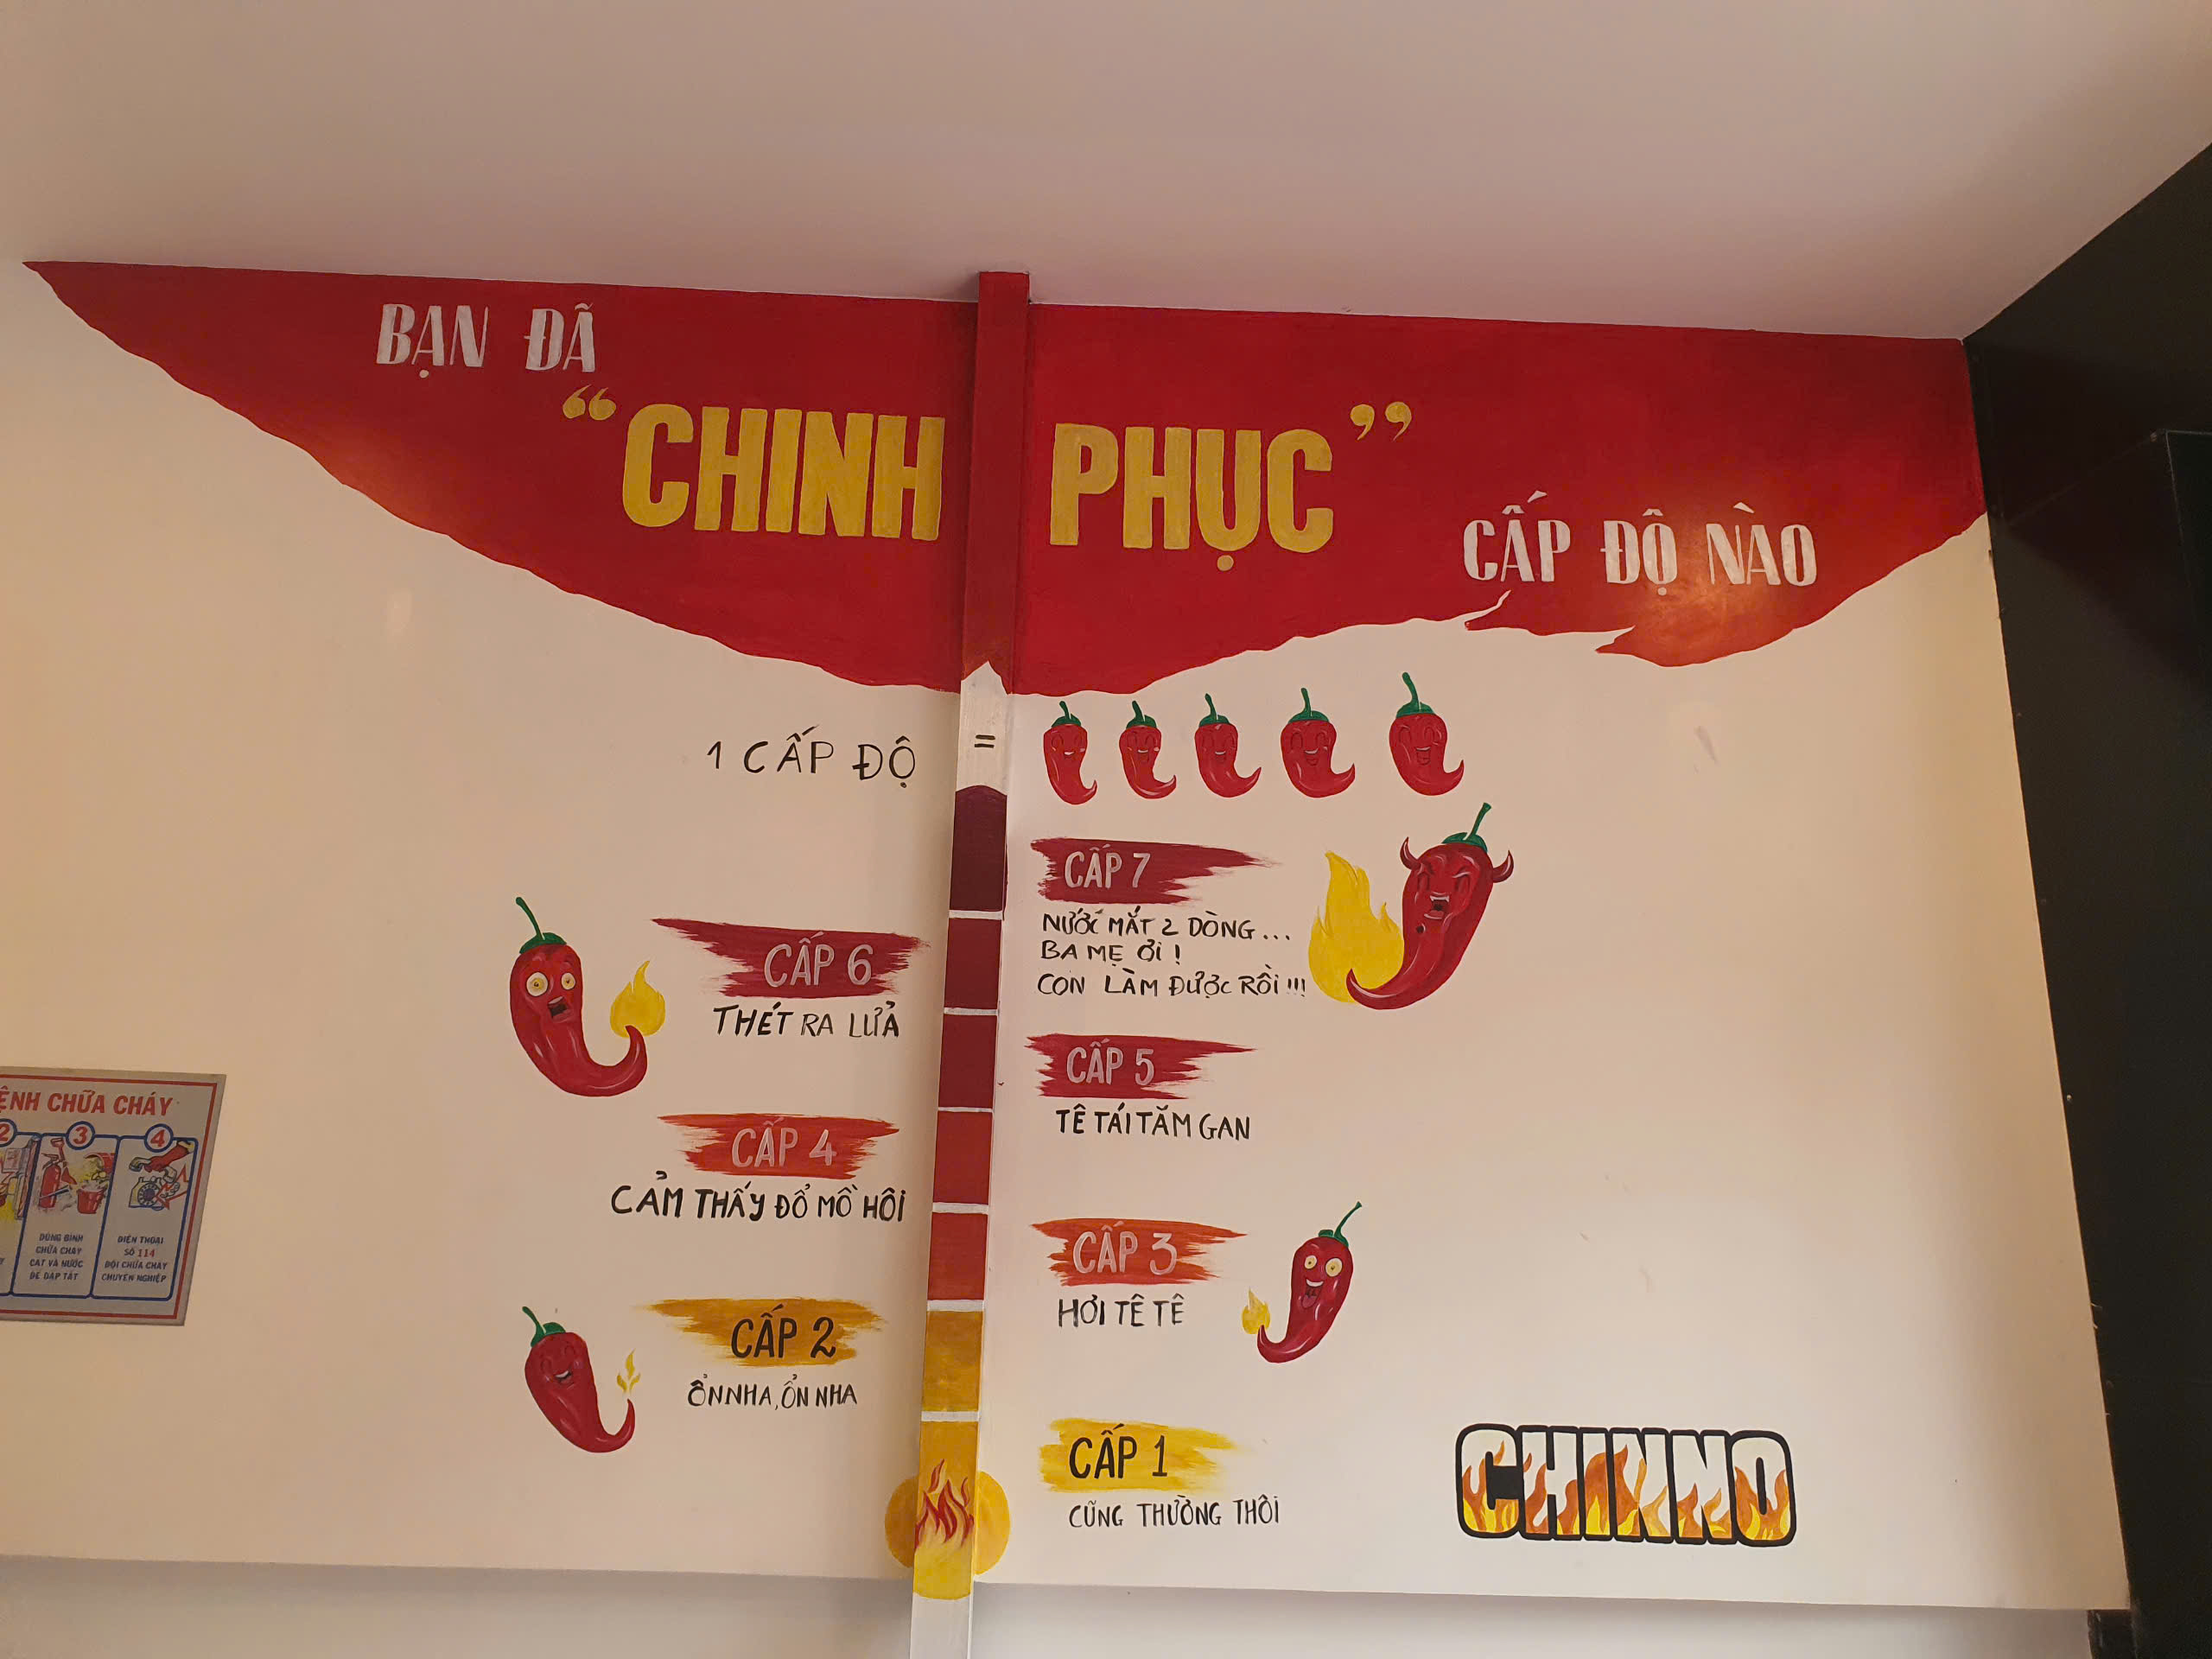 BẠN ĐÃ
“CHINH PHỤC”
CẤP ĐỘ NÀO
1 CẤP ĐỘ =
CẤP 7
NƯỚC MẮT 2 DÒNG...
BA MẸ ƠI !
CON LÀM ĐƯỢC RỒI !!!
CẤP 6
THÉT RA LỬA
CẤP 5
TÊ TÁI TĂM GAN
CẤP 4
CẢM THẤY ĐỔ MỒ HÔI
CẤP 3
HƠI TÊ TÊ
CẤP 2
ỔN NHA, ỔN NHA
CẤP 1
CŨNG THƯỜNG THÔI
CHINNO
ỆNH CHỮA CHÁY
2 3 4
DÙNG BÌNH
CHỮA CHÁY
CÁT VÀ NƯỚC
ĐỂ DẬP TẮT
ĐIỆN THOẠI
SỐ 114
ĐỘI CHỮA CHÁY
CHUYÊN NGHIỆP